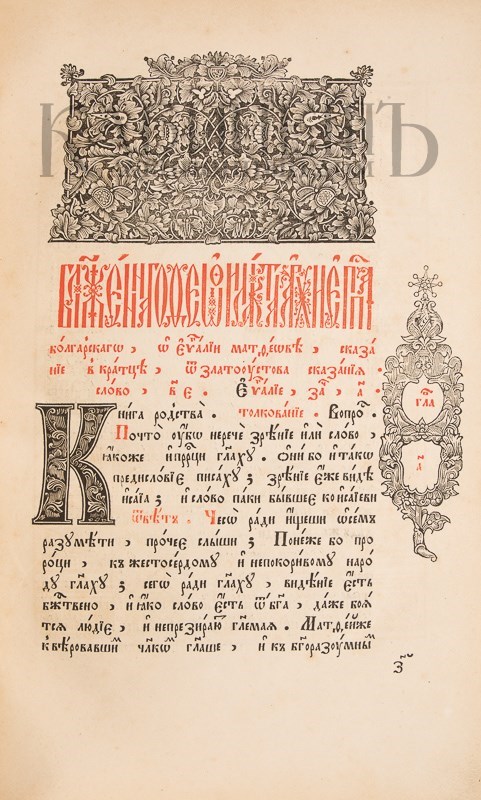 блаже́ннагѡ ѳеѡфила́кта а҆рхїепⷭ҇кпа
болгарскагѡ , ѿ є҆ѵⷢ҇лїи матѳе́ѡвѣ , сказа́
нїе вкратцѣ , ѿ златоустова сказа́нїѧ .
сло́во , в҃е . Є҆ѵⷢ҇лїе , за҄ , а҃ .
Кни́га родства̀ . толкова́нїе . Вопро́ .
Почто̀ оу҆́бѡ неречѐ зрѣ́нїе и҆лѝ сло́во ,
ꙗ҆́коже и҆ прⷪ҇рцы гл҃аху . Ѻ҆ни́ бо и҆та́кѡ
предисло́вїе писа́ху ; зрѣ́нїе є҆́же ви́дѣ
и҆са́їа ; и҆ сло́во па́ки бы́вшее ко и҆са́їеви
ѿвѣ́тъ . Чесѡ̀ ра́ди
разумѣ́ти , про́чее слы́ши ; Поне́же бо про
ро́цы , къ жестосе́рдому и҆ непокори́вому наро́
ду гл҃аху ; сегѡ̀ ра́ди гл҃аху , ви́дѣнїе є҆́сть
бж҃твено , и҆ ꙗ҆́кѡ сло́во є҆́сть ѿ бг҃а , да́же боѧ́
тсѧ лю́дїе , и҆ непрезира́ю гл҃емаѧ . Матѳе́й же
къ вѣ́ровавшимъ чл҃кѡмъ гл҃аше , и҆ къ бл҃горазу́мнымъ
гла
а҃
з҃